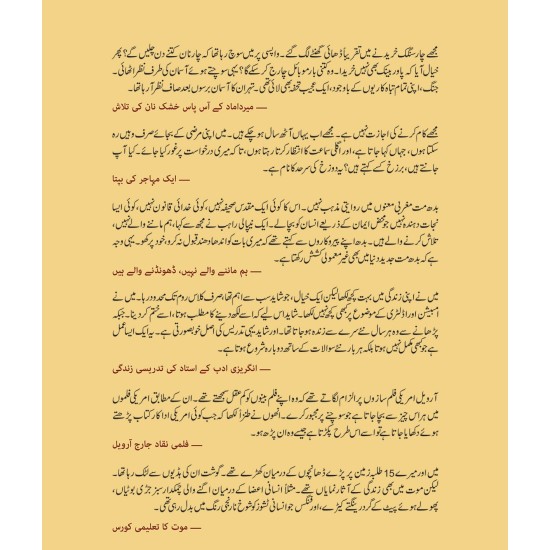 مجھے چار سنگک خریدنے میں تقریباً ڈھائی گھنٹے لگ گئے۔ واپسی پر میں سوچ رہا تھا کہ چار نان کتنے دن چلیں گے؟ پھر
خیال آیا کہ پاور بینک بھی نہیں خریدا۔ وہ کتنی بار موبائل چارج کر سکے گا؟ یہی سوچتے ہوئے آسمان کی طرف نظر اٹھائی۔
جنگ، اپنی تمام تباہ کاریوں کے باوجود، ایک عجیب تحفہ بھی لائی تھی۔ تہران کا آسمان برسوں بعد صاف نظر آ رہا تھا۔
— میرداماد کے آس پاس خشک نان کی تلاش
مجھے کام کرنے کی اجازت نہیں ہے۔ مجھے اب یہاں آٹھ سال ہو چکے ہیں۔ میں اپنی مرضی کے بجائے صرف وہیں رہ
سکتا ہوں، جہاں کہا جاتا ہے، اور اگلی سماعت کا انتظار کرتا رہتا ہوں، تاکہ میری درخواست پر غور کیا جائے۔ کیا آپ
جانتے ہیں، برزخ کسے کہتے ہیں؟ یہ دوزخ کی سرحد کا نام ہے۔
— ایک مہاجر کی بپتا
بدھ مت مغربی معنوں میں روایتی مذہب نہیں۔ اس کا کوئی ایک مقدس صحیفہ نہیں، کوئی خدائی قانون نہیں، کوئی ایسا
نجات دہندہ نہیں جو محض ایمان کے ذریعے انسان کو بچا لے۔ ایک نیپالی راہب نے مجھ سے کہا، ہم ماننے والے نہیں،
تلاش کرنے والے ہیں۔ بدھ اپنے پیروکاروں سے کہتے تھے کہ میری بات کو اندھا دھند قبول نہ کرو، خود پرکھو۔ یہی وجہ
ہے کہ بدھ مت جدید دنیا میں بھی غیر معمولی کشش رکھتا ہے۔
— ہم ماننے والے نہیں، ڈھونڈنے والے ہیں
میں نے اپنی زندگی میں بہت کچھ لکھا لیکن ایک خیال، جو شاید سب سے اہم تھا، صرف کلاس روم تک محدود رہا۔ میں نے
ایمیشن اور اڈلٹری کے موضوع پر کبھی کچھ نہیں لکھا۔ شاید اس لیے کہ اسے لکھ دینے کا مطلب ہوتا، اسے ختم کر دینا۔ جبکہ
پڑھانے سے وہ ہر سال نئے سرے سے زندہ ہو جاتا تھا۔ اور شاید یہی تدریس کی اصل خوبصورتی ہے۔ یہ ایک ایسا عمل
ہے جو کبھی مکمل نہیں ہوتا بلکہ ہر بار نئے سوالات کے ساتھ دوبارہ شروع ہوتا ہے۔
— انگریزی ادب کے استاد کی تدریسی زندگی
آرویل امریکی فلم سازوں پر الزام لگاتے تھے کہ وہ اپنے فلم بینوں کو کم عقل سمجھتے تھے۔ ان کے مطابق امریکی فلموں
میں ہر اس چیز سے بچا جاتا ہے جو سوچنے پر مجبور کرے۔ انھوں نے طنزاً لکھا کہ جب کوئی امریکی اداکار کتاب پڑھتے
ہوئے دکھایا جاتا ہے تو اسے اس طرح پکڑتا ہے جیسے وہ ان پڑھ ہو۔
— فلمی نقاد جارج آرویل
میں اور میرے 15 طلبہ زمین پر پڑے ڈھانچوں کے درمیان کھڑے تھے۔ گوشت ان کی ہڈیوں سے لٹک رہا تھا۔
لیکن موت میں بھی زندگی کے آثار نمایاں تھے۔ مثلاً انسانی اعضا کے درمیان اگنے والی چمکدار سبز جڑی بوٹیاں،
پھولے ہوئے پیٹ کے گرد رینگتے کیڑے، اور فنگس جو انسانی ٹشوز کو شوخ نارنجی رنگ میں بدل رہی تھی۔
— موت کا تعلیمی کورس